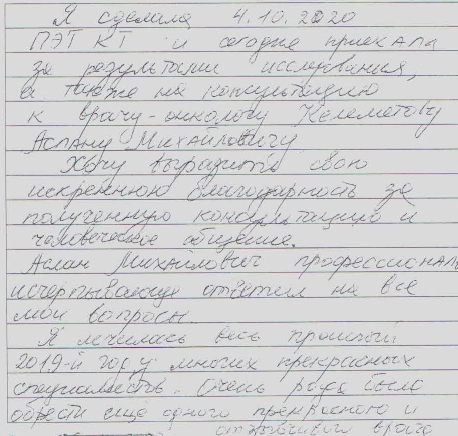 Я сделала 4.10.2020
ПЭТ КТ и сегодня приехала
за результати исследования,
а также на консультацию
к врачу-онкологу Келеметову
Аслану Михайловичу.
Хочу выразить свою
искреннюю благодарность за
полученную консультацию и
человеческое общение.
Аслан Михайлович профессиональ
исчерпывающе ответил на все
мои вопросы.
Я лечилась весь прошлый
2019-й год у многих прекрасных
специалистов. Очень рада была
обрести ещё одного прекрасного и
отзывчивого врача